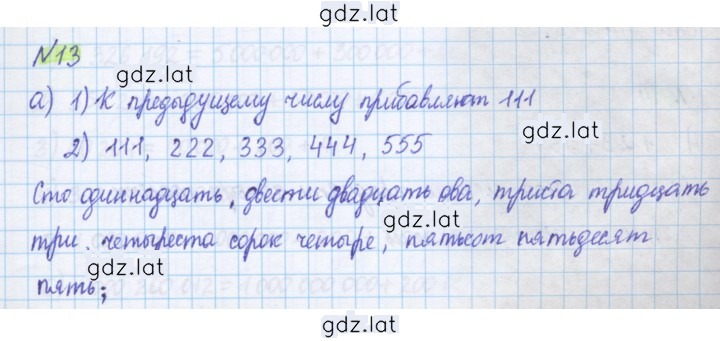 gdz.lat
№13
gdz.lat
а) 1) К предыдущему числу прибавляют 111
gdz.lat
2) 111, 222, 333, 444, 555
gdz.lat
Сто одиннадцать, двести двадцать два, триста тридцать
gdz.lat
три. четыреста сорок четыре, пятьсот пятьдесят
gdz.lat
пять;
gdz.lat